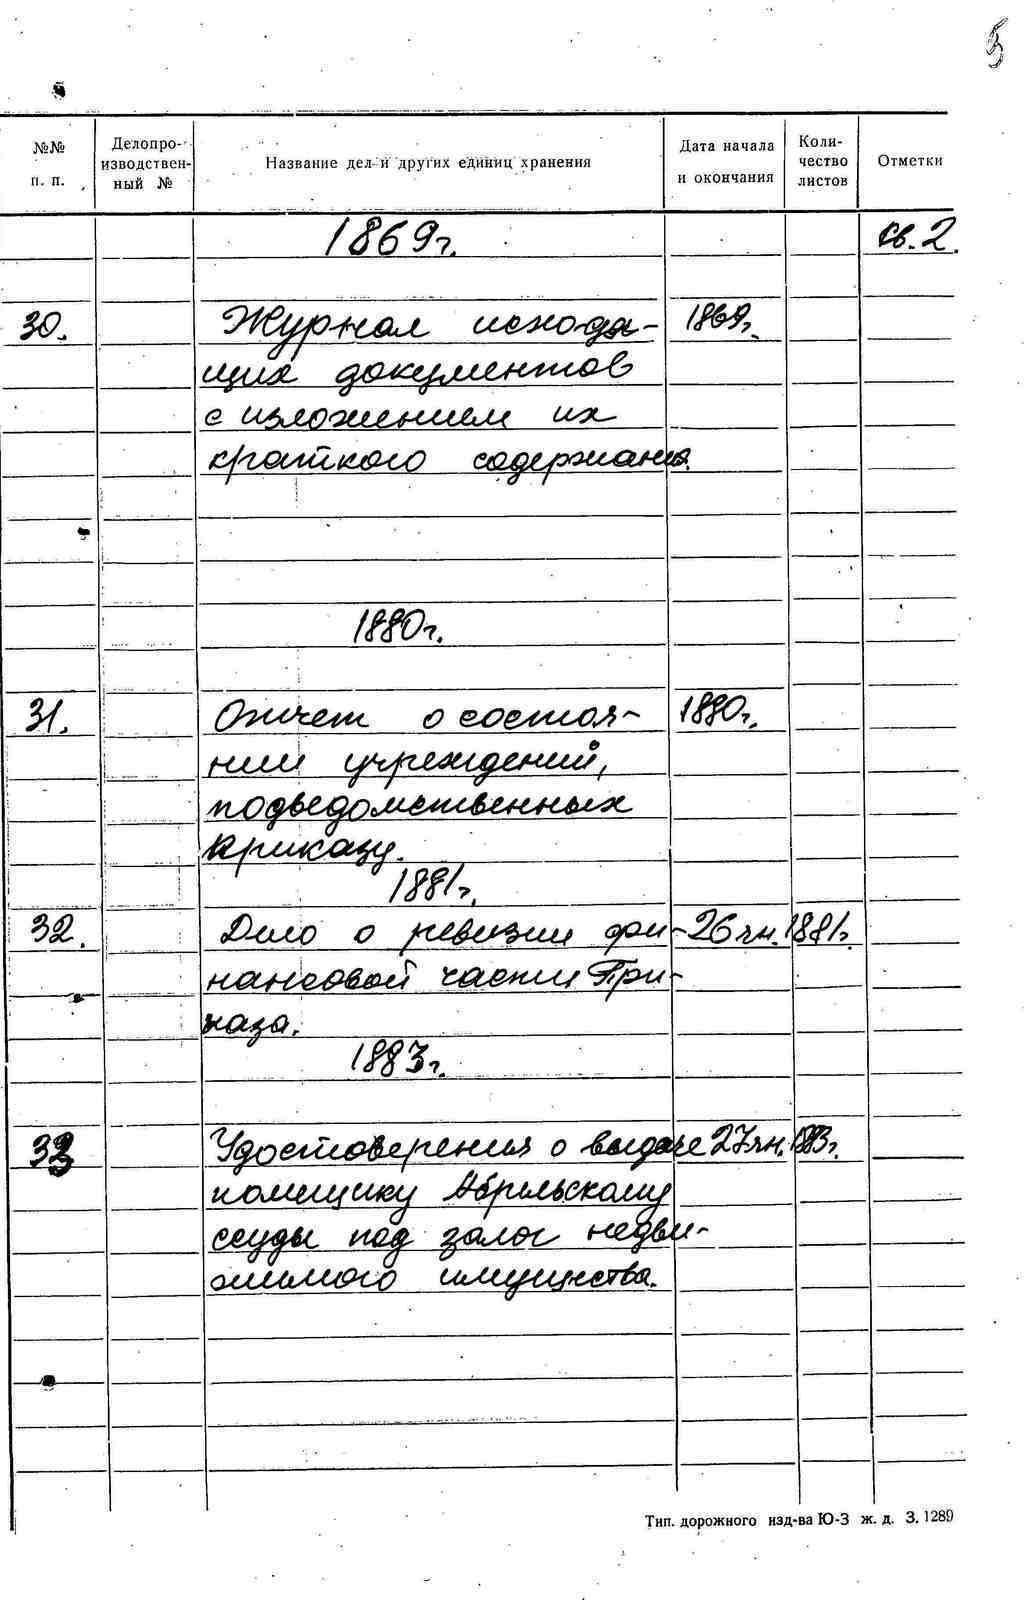 5
№№ п. п. Делопро-изводствен-ный № Название дел и других единиц хранения Дата начала и окончания Коли-чество листов Отметки
1869г. Св. 2.
30. Журнал исходя- 1869г.
щих документов
с изложением их
краткого содержания.
1880г.
31. Отчет о состоя- 1880г.
нии учреждений,
подведомственных
Приказу.
1881г.
32. Дело о ревизии фи- 26 ян. 1881г.
нансовой части При-
каза.
1883г.
33 Удостоверения о выдаче 27 ян. 1883г.
помещику Абрильскому
ссуды под залог недви-
жимого имущества.
Тип. дорожного изд-ва Ю-З ж. д. З. 1289